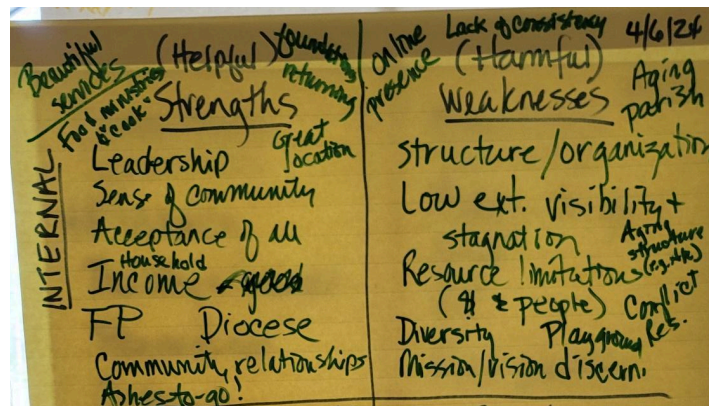 Beautiful services
(Helpful)
returning
Food ministries
"Cook"
Strengths
Great location
INTERNAL
Leadership
Sense of community
Acceptance of all
Household
Income
FP Diocese
Community relationships
Ashes-to-go!
online presence
Lack of consistency
4/6/24
(Harmful)
Weaknesses
Aging parish
structure/organization
Low ext. visibility +
stagnation
Aging structure
Resource limitations
($ & people)
Conflict Res.
Diversity Playground
Mission/vision discern.